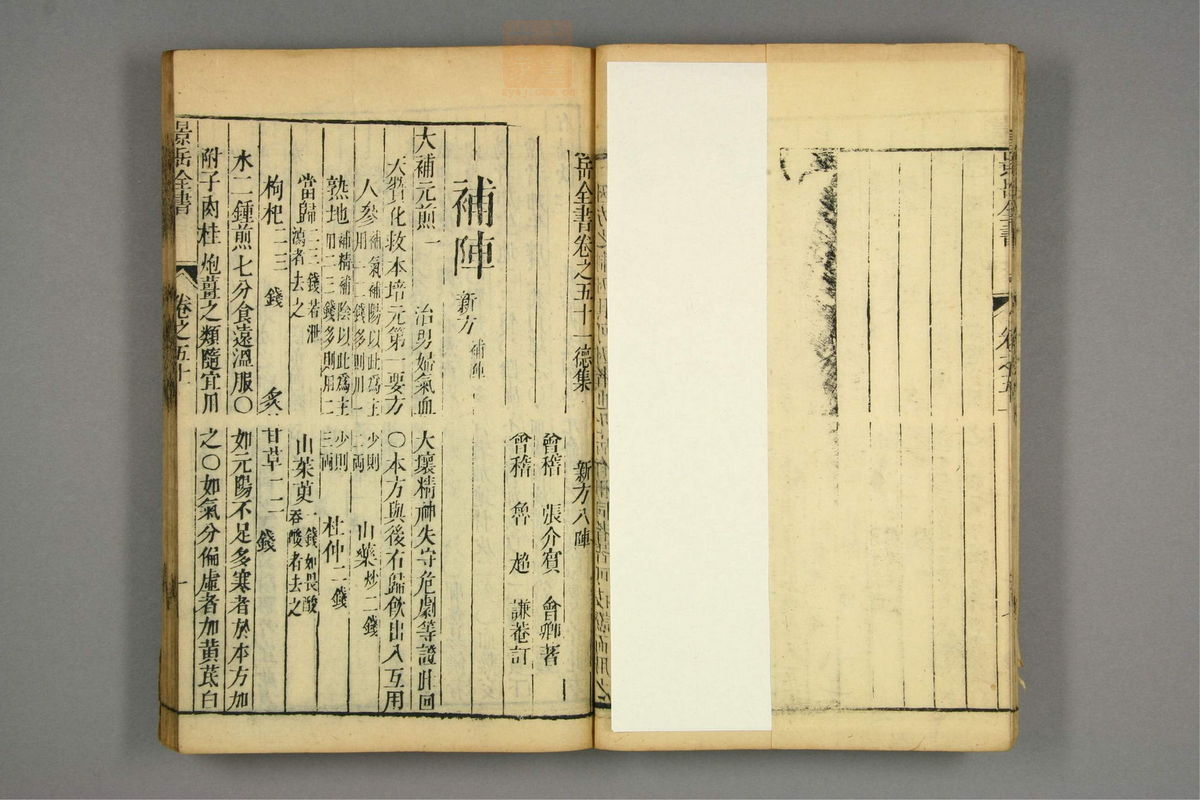 岳全書卷之五十一德集　新方八陣
會稽　張介賓　會卿著
會稽　魯　超　謙菴訂
補陣　新方　補陣
大補元煎一　治男婦氣血大壞精神失守危劇等證此回
天贊化救本培元第一要方〇本方與後右歸飲出入互用
人參　補氣補陽以此為主少則用一二錢多則用一二兩　山藥炒二錢
熟地　補精補陰以此為主少則用二三錢多則用二三兩　杜仲二錢
當歸　二三錢若泄瀉者去之　山茱萸　一錢如畏酸吞酸者去之
枸杞二三錢　炙甘草一二錢
水二鍾煎七分食遠溫服〇如元陽不足多寒者於本方加
附子肉桂炮薑之類隨宜用之〇如氣分偏虛者加黃茋白
景岳全書　卷之五十　一